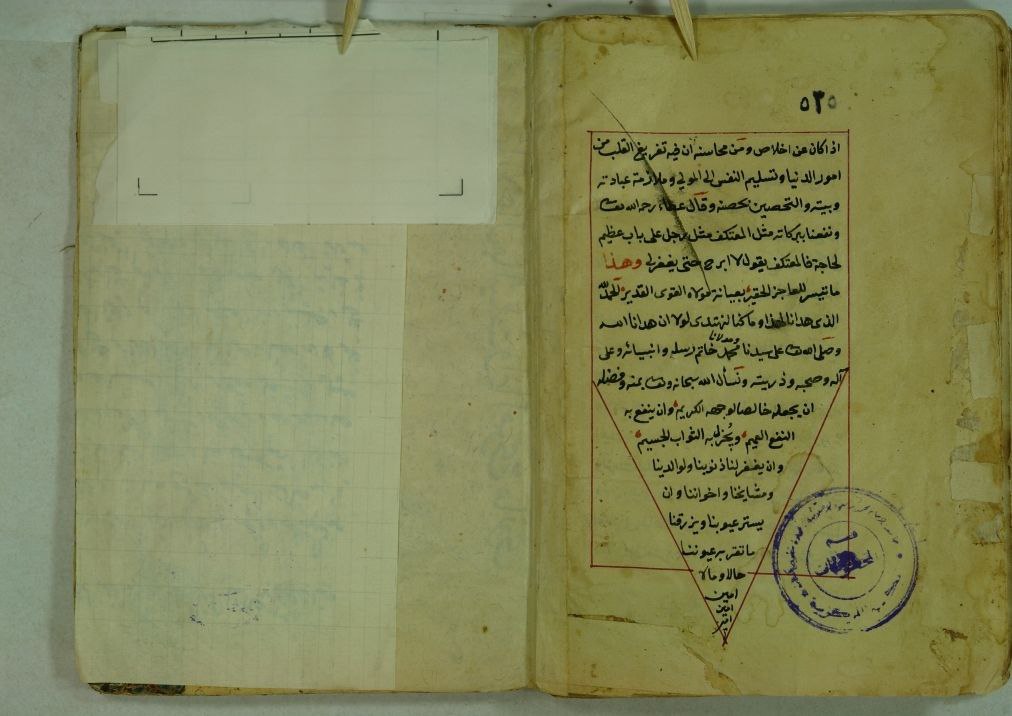 ٥٣٥
اذا كان عن اخلاص ومن محاسنه ان فيه تفريغ القلب من
امور الدنيا وتسليم النفس الى المولى وملازمة عبادته
وبيته والتحصين بحصنه وقال عطاء رحمه الله تعالى
ونفعنا ببركاته مثل المعتكف مثل رجل على باب عظيم
لحاجة فالمعتكف يقول لا ابرح حتى يغفر لى وهذا
ما تيسر للعاجز الحقير بعناية مولاه القوى القدير الحمد لله
الذى هدانا لهذا وما كنا لنهتدى لولا ان هدانا الله
وصلى الله تعالى على سيدنا ومولانا محمد خاتم رسله وانبيائه وعلى
آله وصحبه وذريته ونسأل الله سبحانه وتعالى بمنه وفضله
ان يجعله خالصا لوجهه الكريم وان ينفع به
النفع العميم ويجزل به الثواب الجسيم
وان يغفر لنا ذنوبنا ولوالدينا
ومشايخنا واخواننا وان
يستر عيوبنا ويرزقنا
ما تقر به عيوننا
حالا ومآلا
امين
امين
امين